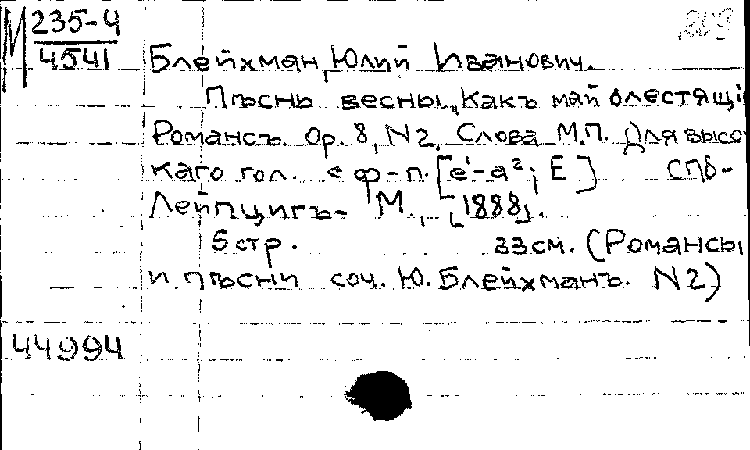 М 235-4
4541
209
Блейхман, Юлий Иванович.
Пѣснь весны, "Какъ май блестящі
Романсъ. Ор. 8, N2. Слова М.П. Для высо
каго гол. с ф-п. [e¹-a²; E] СПб-
Лейпцигъ- М., [1888].
5 стр. 33 см. (Романсы
и пѣсни соч. Ю. Блейхманъ. N2)
44994